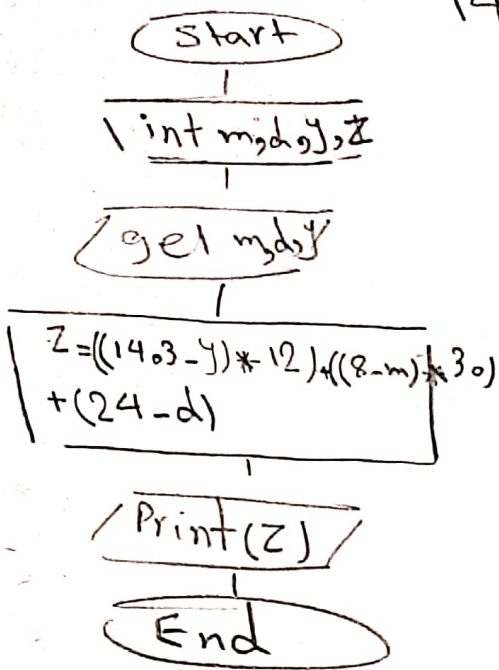 14
Start
int m,d,y,Z
get m,d,y
Z=((1403-y)*12)+((8-m)*30)
+(24-d)
Print(Z)
End